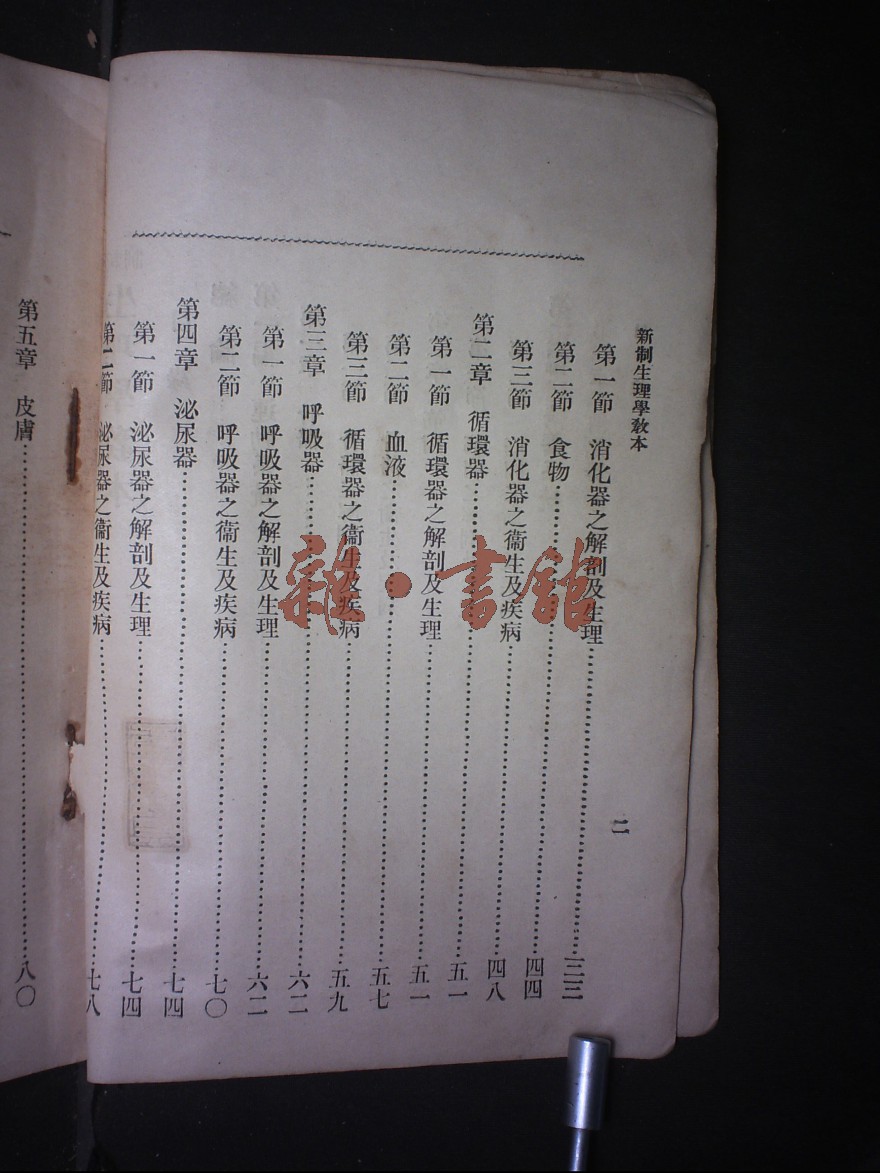 新制生理學教本
二
第一節 消化器之解剖及生理……三三
第二節 食物……四四
第三節 消化器之衞生及疾病……四八
第二章 循環器……五一
第一節 循環器之解剖及生理……五一
第二節 血液……五七
第三節 循環器之衞生及疾病……五九
第三章 呼吸器……六二
第一節 呼吸器之解剖及生理……六二
第二節 呼吸器之衞生及疾病……七〇
第四章 泌尿器……七四
第一節 泌尿器之解剖及生理……七四
第二節 泌尿器之衞生及疾病……七八
第五章 皮膚……八〇
雜·書館